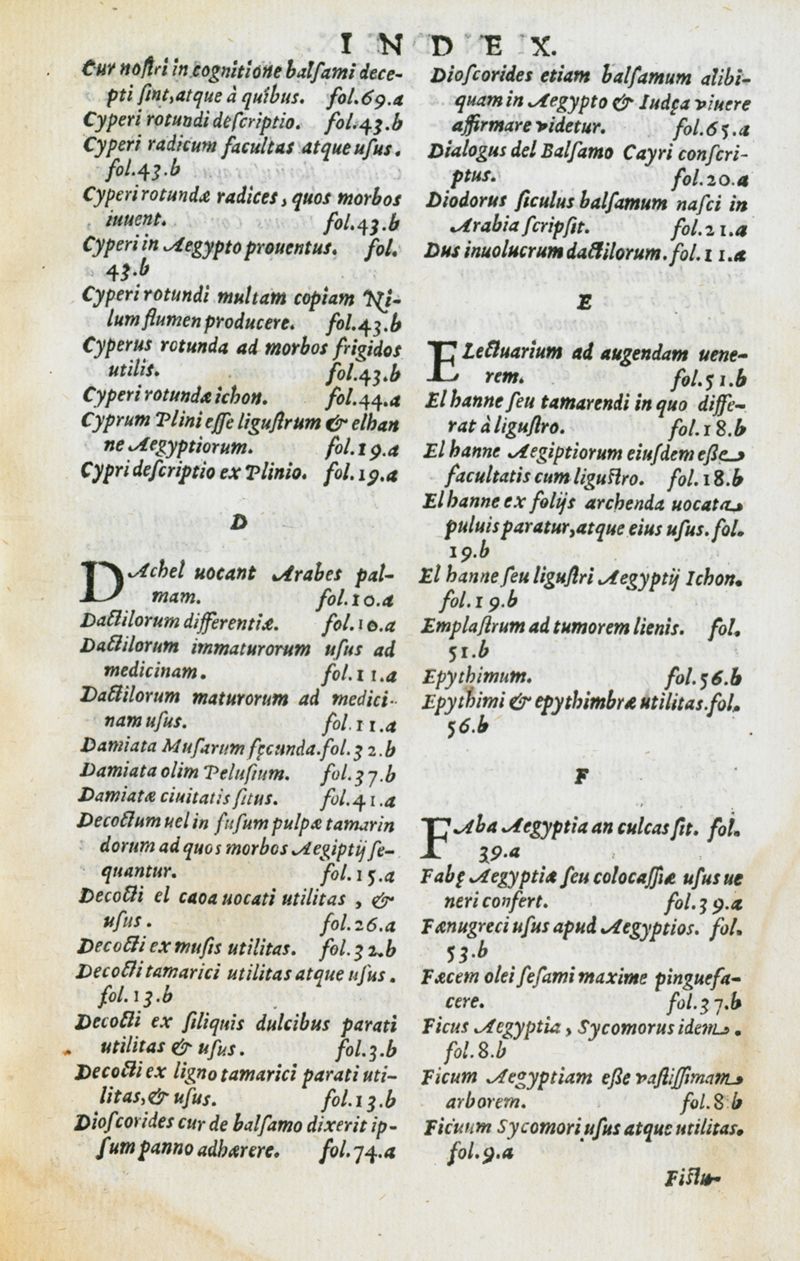 INDEX.
Cur noſtri in cognitione balſami dece-
pti ſint, atque à quibus. fol.69.a
Cyperi rotundi deſcriptio. fol.43.b
Cyperi radicum facultas atque uſus.
fol.43.b
Cyperi rotundæ radices, quos morbos
iuuent. fol.43.b
Cyperi in Aegypto prouentus. fol.
43.b
Cyperi rotundi multam copiam Ni-
lum flumen producere. fol.43.b
Cyperus rotunda ad morbos frigidos
utilis. fol.43.b
Cyperi rotundæ ichon. fol.44.a
Cyprum Plini eſſe liguſtrum & elhan
ne Aegyptiorum. fol.19.a
Cypri deſcriptio ex Plinio. fol.19.a
D
DAchel uocant Arabes pal-
mam. fol.10.a
Dactilorum differentiæ. fol.10.a
Dactilorum immaturorum uſus ad
medicinam. fol.11.a
Dactilorum maturorum ad medici-
nam uſus. fol.11.a
Damiata Muſarum fęcunda. fol.32.b
Damiata olim Peluſium. fol.37.b
Damiatæ ciuitatis ſitus. fol.41.a
Decoctum uel in fuſum pulpæ tamarin
dorum ad quos morbos Aegiptij ſe-
quantur. fol.15.a
Decocti el caoa uocati utilitas, &
uſus. fol.26.a
Decocti ex muſis utilitas. fol.32.b
Decocti tamarici utilitas atque uſus.
fol.13.b
Decocti ex ſiliquis dulcibus parati
utilitas & uſus. fol.3.b
Decocti ex ligno tamarici parati uti-
litas, & uſus. fol.13.b
Dioſcorides cur de balſamo dixerit ip-
ſum panno adhærere. fol.74.a
Dioſcorides etiam balſamum alibi-
quam in Aegypto & Iudęa viuere
affirmare videtur. fol.65.a
Dialogus del Balſamo Cayri conſcri-
ptus. fol.20.a
Diodorus ſiculus balſamum naſci in
Arabia ſcripſit. fol.21.a
Dus inuolucrum dactilorum. fol.11.a
E
ELectuarium ad augendam uene-
rem. fol.51.b
El hanne ſeu tamarendi in quo diffe-
rat à liguſtro. fol.18.b
El hanne Aegiptiorum eiuſdem eſſe
facultatis cum liguſtro. fol.18.b
El hanne ex folijs archenda uocata
puluis paratur, atque eius uſus. fol.
19.b
El hanne ſeu liguſtri Aegyptij Ichon.
fol.19.b
Emplaſtrum ad tumorem lienis. fol.
51.b
Epythimum. fol.56.b
Epythimi & epythimbræ utilitas. fol.
56.b
F
FAba Aegyptia an culcas ſit. fol.
39.a
Fabę Aegyptiæ ſeu colocaſſiæ uſus ue
neri confert. fol.39.a
Fænugreci uſus apud Aegyptios. fol.
53.b
Fæcem olei ſeſami maxime pinguefa-
cere. fol.37.b
Ficus Aegyptia, Sycomorus idem.
fol.8.b
Ficum Aegyptiam eſſe vaſtiſſimam
arborem. fol.8.b
Ficuum Sycomori uſus atque utilitas.
fol.9.a
Fiſtu-